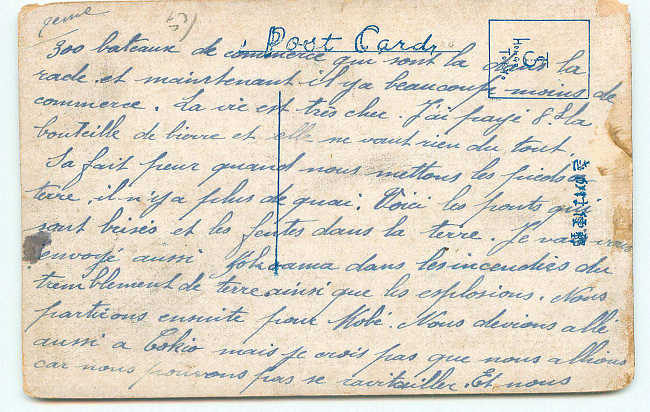 2eme
Post Card
300 bateaux de commerce qui sont la dans la
rade et maintenant il y a beaucoup moins de
commerce. La vie est très cher. J'ai payé 8 la
bouteille de bierre et elle ne vaut rien du tout.
Sa fait peur quand nous mettons les pieds a
terre, il n'y a plus de quai. Voici les ponts qui
sont brisés et les fentes dans la terre. Je vai vous
envoyé aussi Yokoama dans les incendies du
tremblement de terre ainsi que les explosions. Nous
partirons ensuite pour Kobé. Nous devions allé
aussi a Tokio mais je crois pas que nous allions
car nous pouvons pas se ravitailler. Et nous